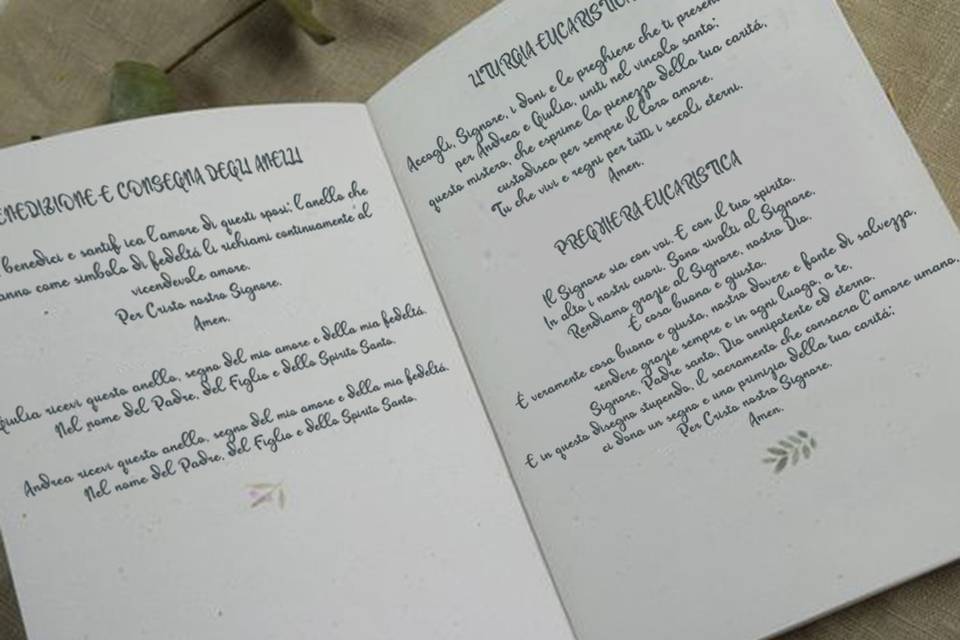 BENEDIZIONE E CONSEGNA DEGLI ANELLI
benedici e santifica l'amore di questi sposi: l'anello che
anno come simbolo di fedeltà li richiami continuamente al
vicendevole amore.
Per Cristo nostro Signore.
Amen.
Giulia ricevi questo anello, segno del mio amore e della mia fedeltà.
Nel nome del Padre, del Figlio e dello Spirito Santo.
Andrea ricevi questo anello, segno del mio amore e della mia fedeltà.
Nel nome del Padre, del Figlio e dello Spirito Santo.
LITURGIA EUCARISTICA
Accogli, Signore, i doni e le preghiere che ti presen
per Andrea e Giulia, uniti nel vincolo santo:
questo mistero, che esprime la pienezza della tua carità,
custodisca per sempre il loro amore.
Tu che vivi e regni per tutti i secoli eterni.
Amen.
PREGHIERA EUCARISTICA
Il Signore sia con voi. E con il tuo spirito.
In alto i nostri cuori. Sono rivolti al Signore.
Rendiamo grazie al Signore, nostro Dio.
È cosa buona e giusta.
È veramente cosa buona e giusta, nostro dovere e fonte di salvezza,
rendere grazie sempre e in ogni luogo, a te,
Signore, Padre santo, Dio onnipotente ed eterno.
E in questo disegno stupendo, il sacramento che consacra l'amore umano,
ci dona un segno e una primizia della tua carità:
Per Cristo nostro Signore.
Amen.